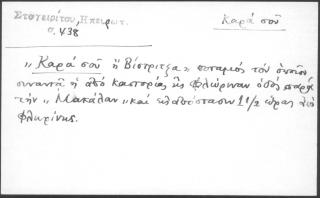 Σταγειρίτου, Ηπειρωτ.
σ. 438
Καρά σοῦ
„ Καρά σοῦ ἤ Βίστριτζα „ ποταμὸς τὸν ὁποῖον
συναντᾷ ἡ ἀπὸ Καστορίας εἰς Φλώριναν ὁδὸς παρὰ
τὴν „ Μακάλαν „ καὶ ἀπόστασιν 1 1/2 ὥρας ἀπὸ
Φλωρίνης.